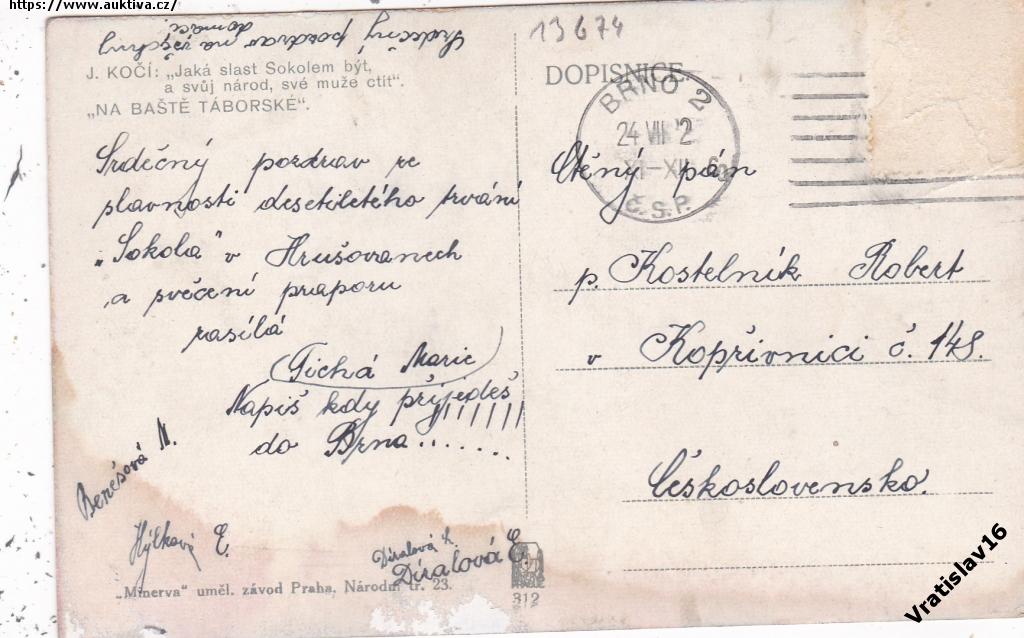 https://www.auktiva.cz/
13674
Srdečný pozdrav na všechny
domácí
J. KOČÍ: „Jaká slast Sokolem být,
a svůj národ, své muže ctít“.
„NA BAŠTĚ TÁBORSKÉ“.
DOPISNICE
BRNO 2
24 VII 2
XI-XII
Č.S.P.
Srdečný pozdrav ze
slavnosti desetiletého trvání
„Sokola“ v Hrušovanech
a svěcení praporu
zasílá
Tichá Marie
Napiš kdy přijedeš!!!!!!
do Brna.......
Ctěný pán
p. Kostelník Robert
v Kopřivnici č. 148.
Československo.
Benésová M.
Hýlková E.
Díralová
Díralová E.
„Minerva“ uměl. závod Praha, Národní tř. 23.
312
Vratislav16